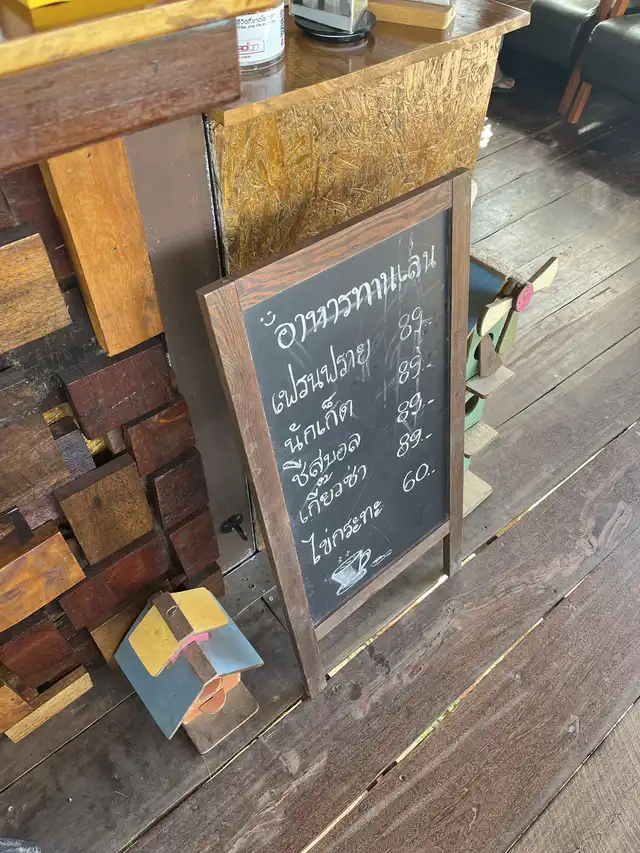 อาหารทานเล่น
เฟรนฟราย 89.-
นักเก็ต 89.-
ชีสบอล 89.-
เกี๊ยวซ่า 89.-
ไข่กระทะ 60.-